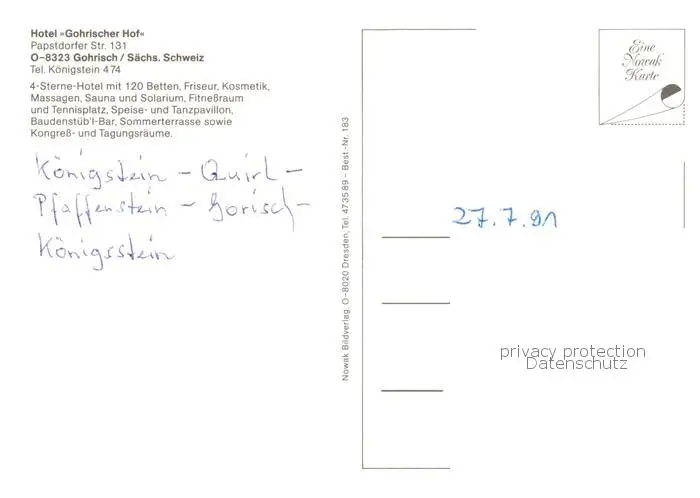 Hotel »Gohrischer Hof«
Papstdorfer Str. 131
O-8323 Gohrisch / Sächs. Schweiz
Tel. Königstein 474
4-Sterne-Hotel mit 120 Betten, Friseur, Kosmetik,
Massagen, Sauna und Solarium, Fitneßraum
und Tennisplatz, Speise- und Tanzpavillon,
Baudenstüb'l-Bar, Sommerterrasse sowie
Kongreß- und Tagungsräume.
Königstein - Quirl -
Pfaffenstein - Gorisch -
Königsstein
Nowak Bildverlag, O-8020 Dresden, Tel. 4735 89 – Best.-Nr. 183
Eine
Nowak
Karte
27.7.91
privacy protection
Datenschutz